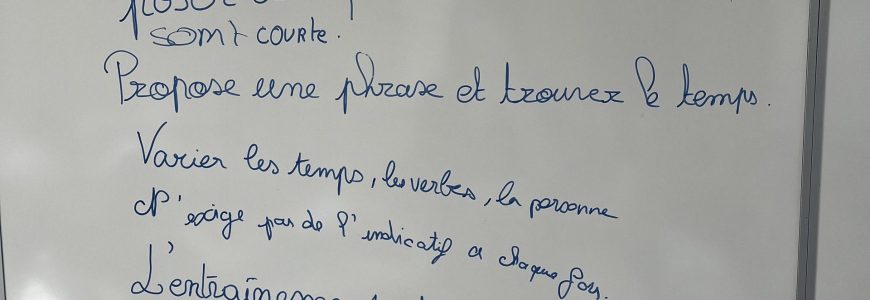 somt courte.
Propose une phrase et trouvez le temps.
Varier les temps, les verbes, la personne
N'exige pas de l'indicatif a chaque fois.
L'entraîneme